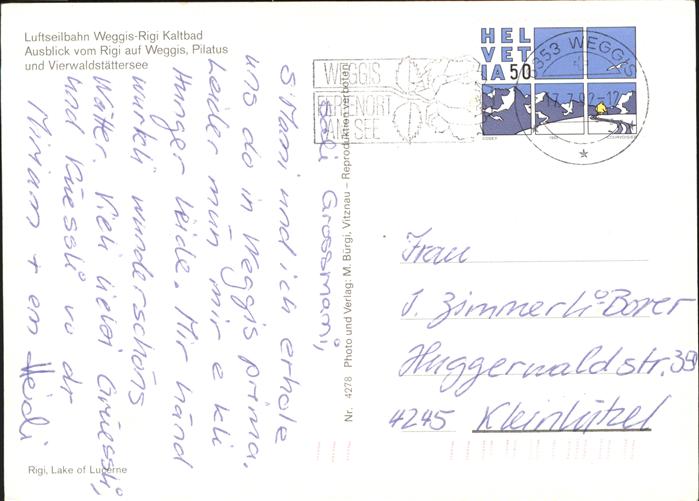 Luftseilbahn Weggis-Rigi Kaltbad
Ausblick vom Rigi auf Weggis, Pilatus
und Vierwaldstättersee
HEL
VET
IA 50
WEGGIS
FERIENORT
AM SEE
6353 WEGGIS
17.7.92-12
Hoi Grossmami,
s Mami und ich erhole
uns do in Weggis prima.
Leider mün mir e kli
Hunger leide. Mir händ
würkli wunderschöns
Wätter. Vieli liebi Grüessli,
und Küessli vo dr
Miriam + em Heidi
Nr. 4278 Photo und Verlag: M. Bürgi, Vitznau – Reproduktion verboten
Frau
J. Zimmerli-Borer
Huggerwaldstr. 39
4245 Kleinlützel
Rigi, Lake of Lucerne